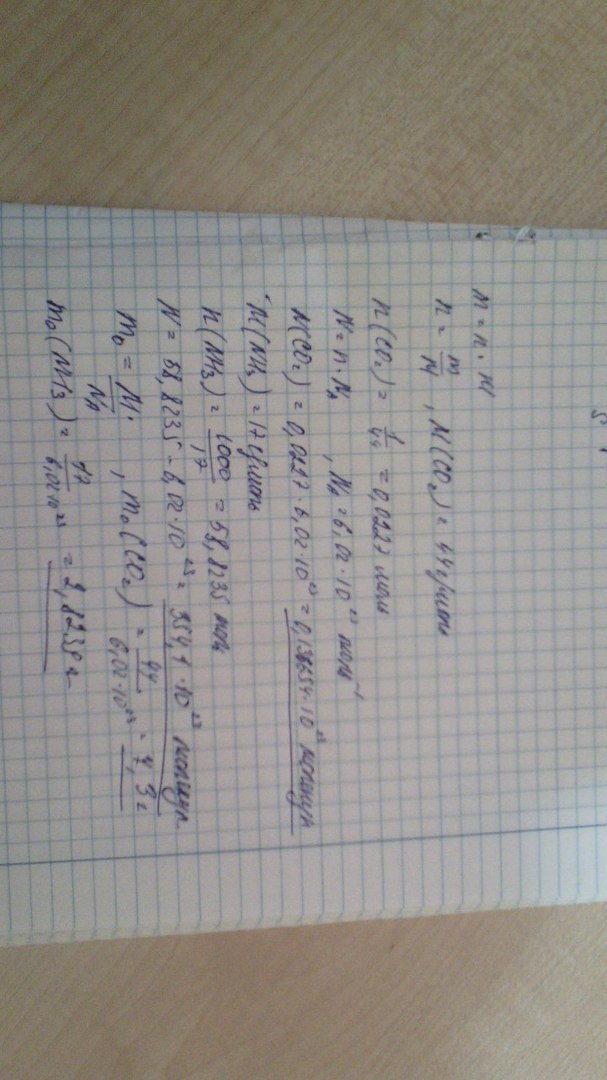 m = n · M
n = m/M , M(CO₂) = 44 г/моль
n(CO₂) = 1/44 = 0,0227 моль
N = n · Nₐ , Nₐ = 6,02 · 10²³ моль⁻¹
N(CO₂) = 0,0227 · 6,02 · 10²³ = 0,136654 · 10²³ молекул
M(NH₃) = 17 г/моль
n(NH₃) = 1000/17 = 58,8235 моль
N = 58,8235 · 6,02 · 10²³ = 354,1 · 10²³ молекул
m₀ = M/Nₐ , m₀(CO₂) = 44/6,02·10²³ = 7,3 г
m₀(NH₃) = 17/6,02·10²³ = 2,8239 г